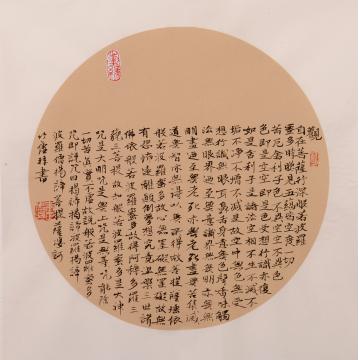 觀
自在菩薩行深般若波羅
蜜多時照見五蘊皆空度一切
苦厄舍利子色不異空空不異色
色即是空空即是色受想行識亦復
如是舍利子是諸法空相不生不滅不
垢不淨不增不減是故空中無色無受
想行識無眼耳鼻舌身意無色聲香味觸
法無眼界乃至無意識界無無明亦無無
明盡乃至無老死亦無老死盡無苦集滅
道無智亦無得以無所得故菩提薩埵依
般若波羅蜜多故心無罣礙無罣礙故無
有恐怖遠離顛倒夢想究竟涅槃三世諸
佛依般若波羅蜜多故得阿耨多羅三
藐三菩提故知般若波羅蜜多是大神
咒是大明咒是無上咒是無等等咒能除
一切苦真實不虛故說般若波羅蜜多
咒即說咒曰揭諦揭諦波羅揭諦
波羅僧揭諦菩提薩婆訶
書